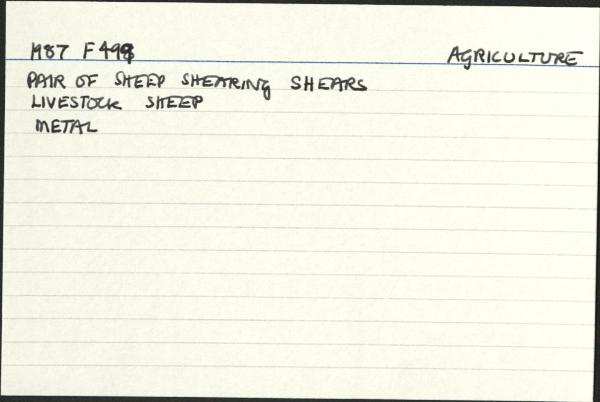 M87 F498 AGRICULTURE
PAIR OF SHEEP SHEARING SHEARS
LIVESTOCK SHEEP
METAL